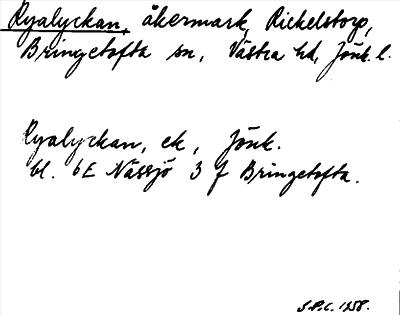 Ryalyckan, åkermark, Rickelstorp,
Bringetofta sn, Västra hd, Jönk. l.
Ryalyckan, ek, Jönk.
bl. 6E Nässjö 3 f Bringetofta.
S.P.C. 1958.